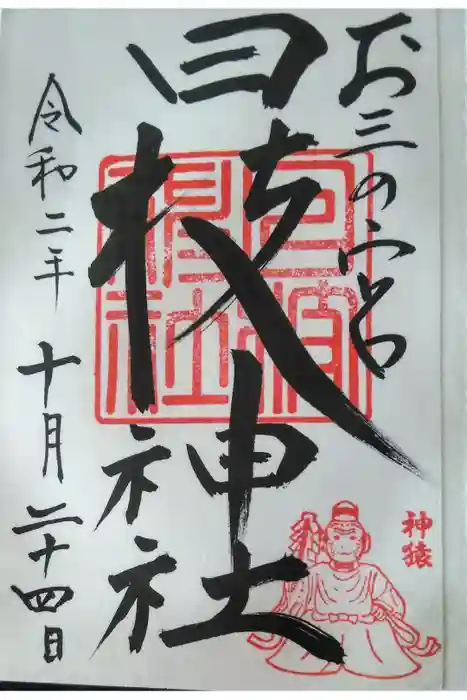 お三の宮
日枝神社
令和二年 十月 二十四日
日枝神社
神猿